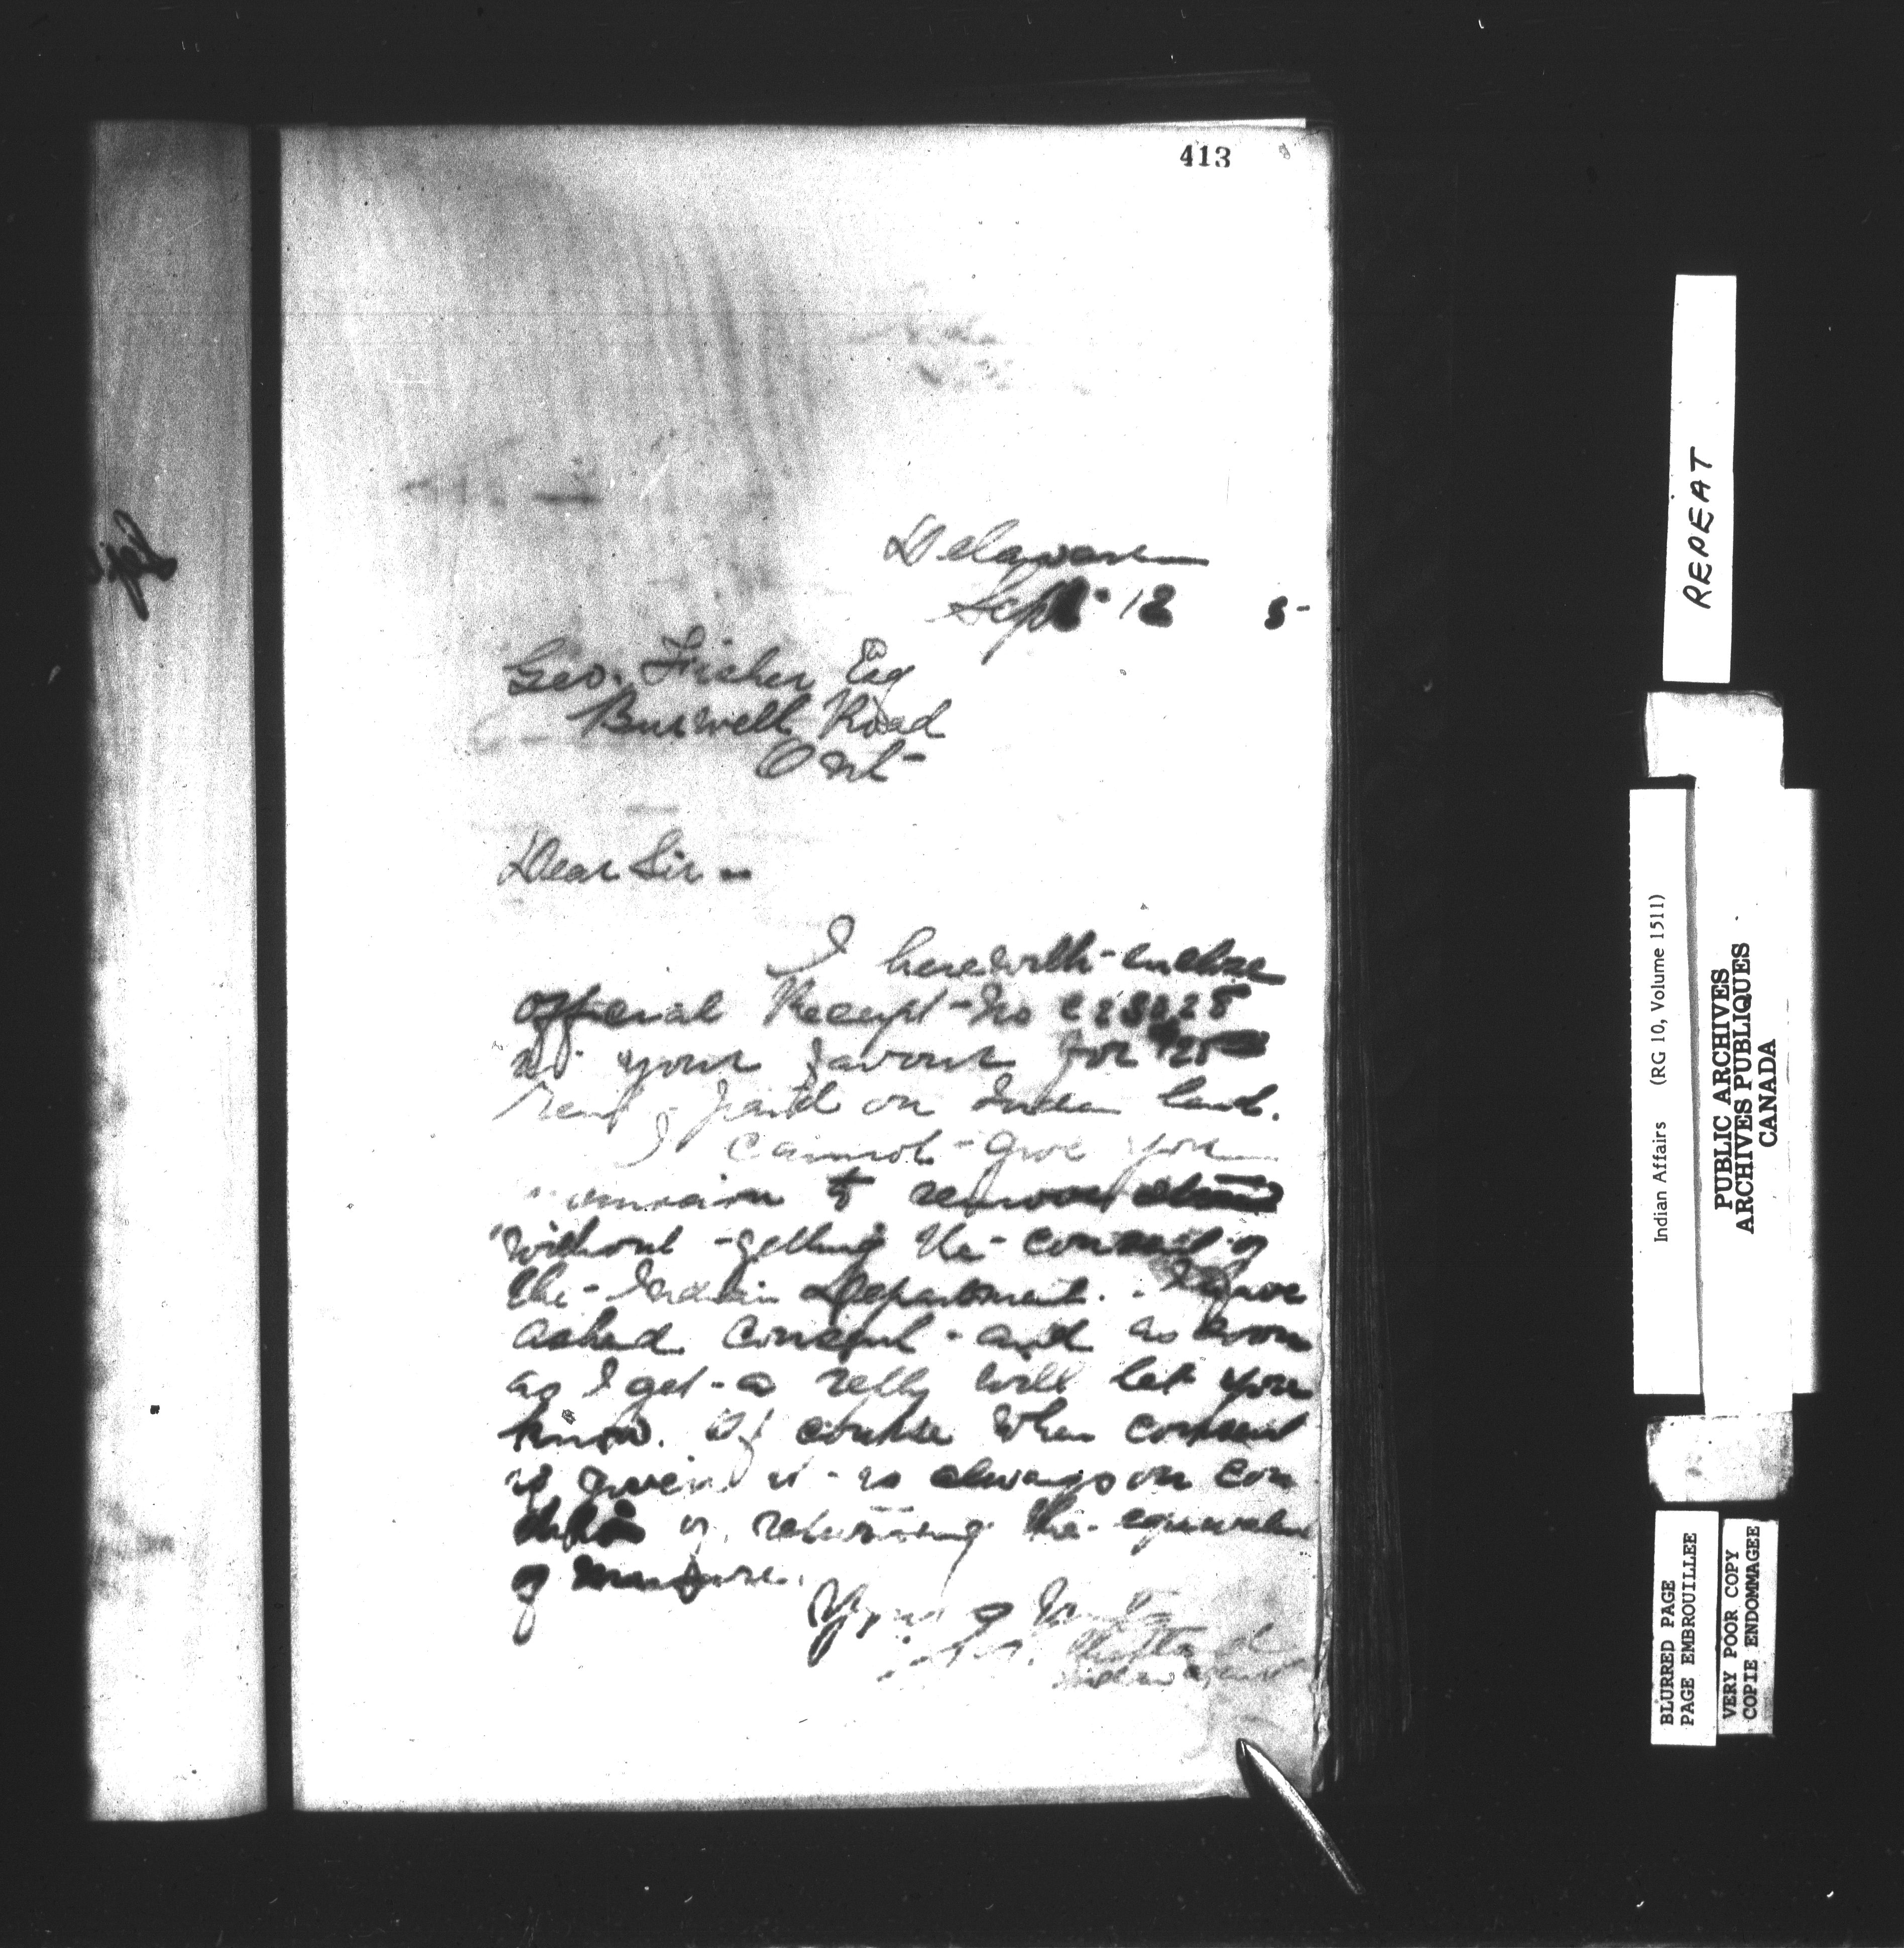 413
Delaware
Sept 12 5-
Geo. Fisher Esq
Burwell Road
Ont
Dear Sir -
I herewith enclose
official Receipt No
in your favour for
rent paid on Indian land.
I cannot give you
to remove straw
without getting the consent of
the Indian Department. I have
asked consent and as soon
as I get a reply will let you
know. Of course when consent
is given it is always on con
dition of returning the equivalent
of manure.
Yours
Indian Agent
REPEAT
Indian Affairs (RG 10, Volume 1511)
PUBLIC ARCHIVES
ARCHIVES PUBLIQUES
CANADA
BLURRED PAGE
PAGE EMBROUILLEE
VERY POOR COPY
COPIE ENDOMMAGEE